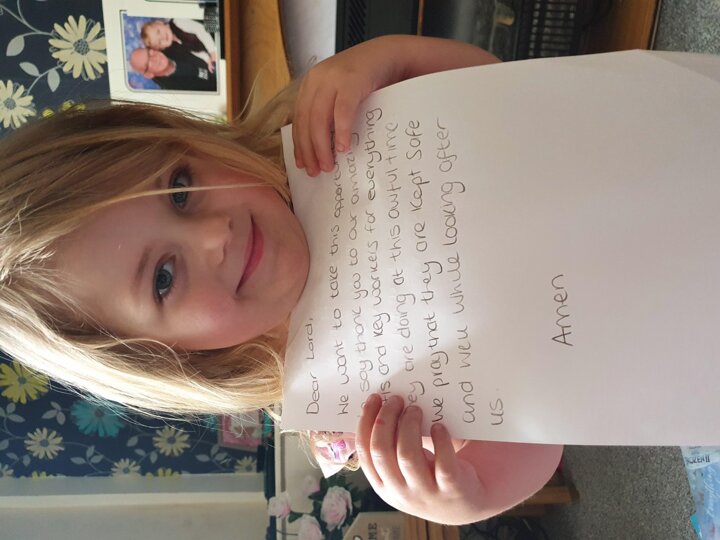 Dear Lord,
We want to take this
say thank you to our amazing
and key workers for everything
are doing at this awful time.
we pray that they are kept safe
and well while looking after
us.
Amen